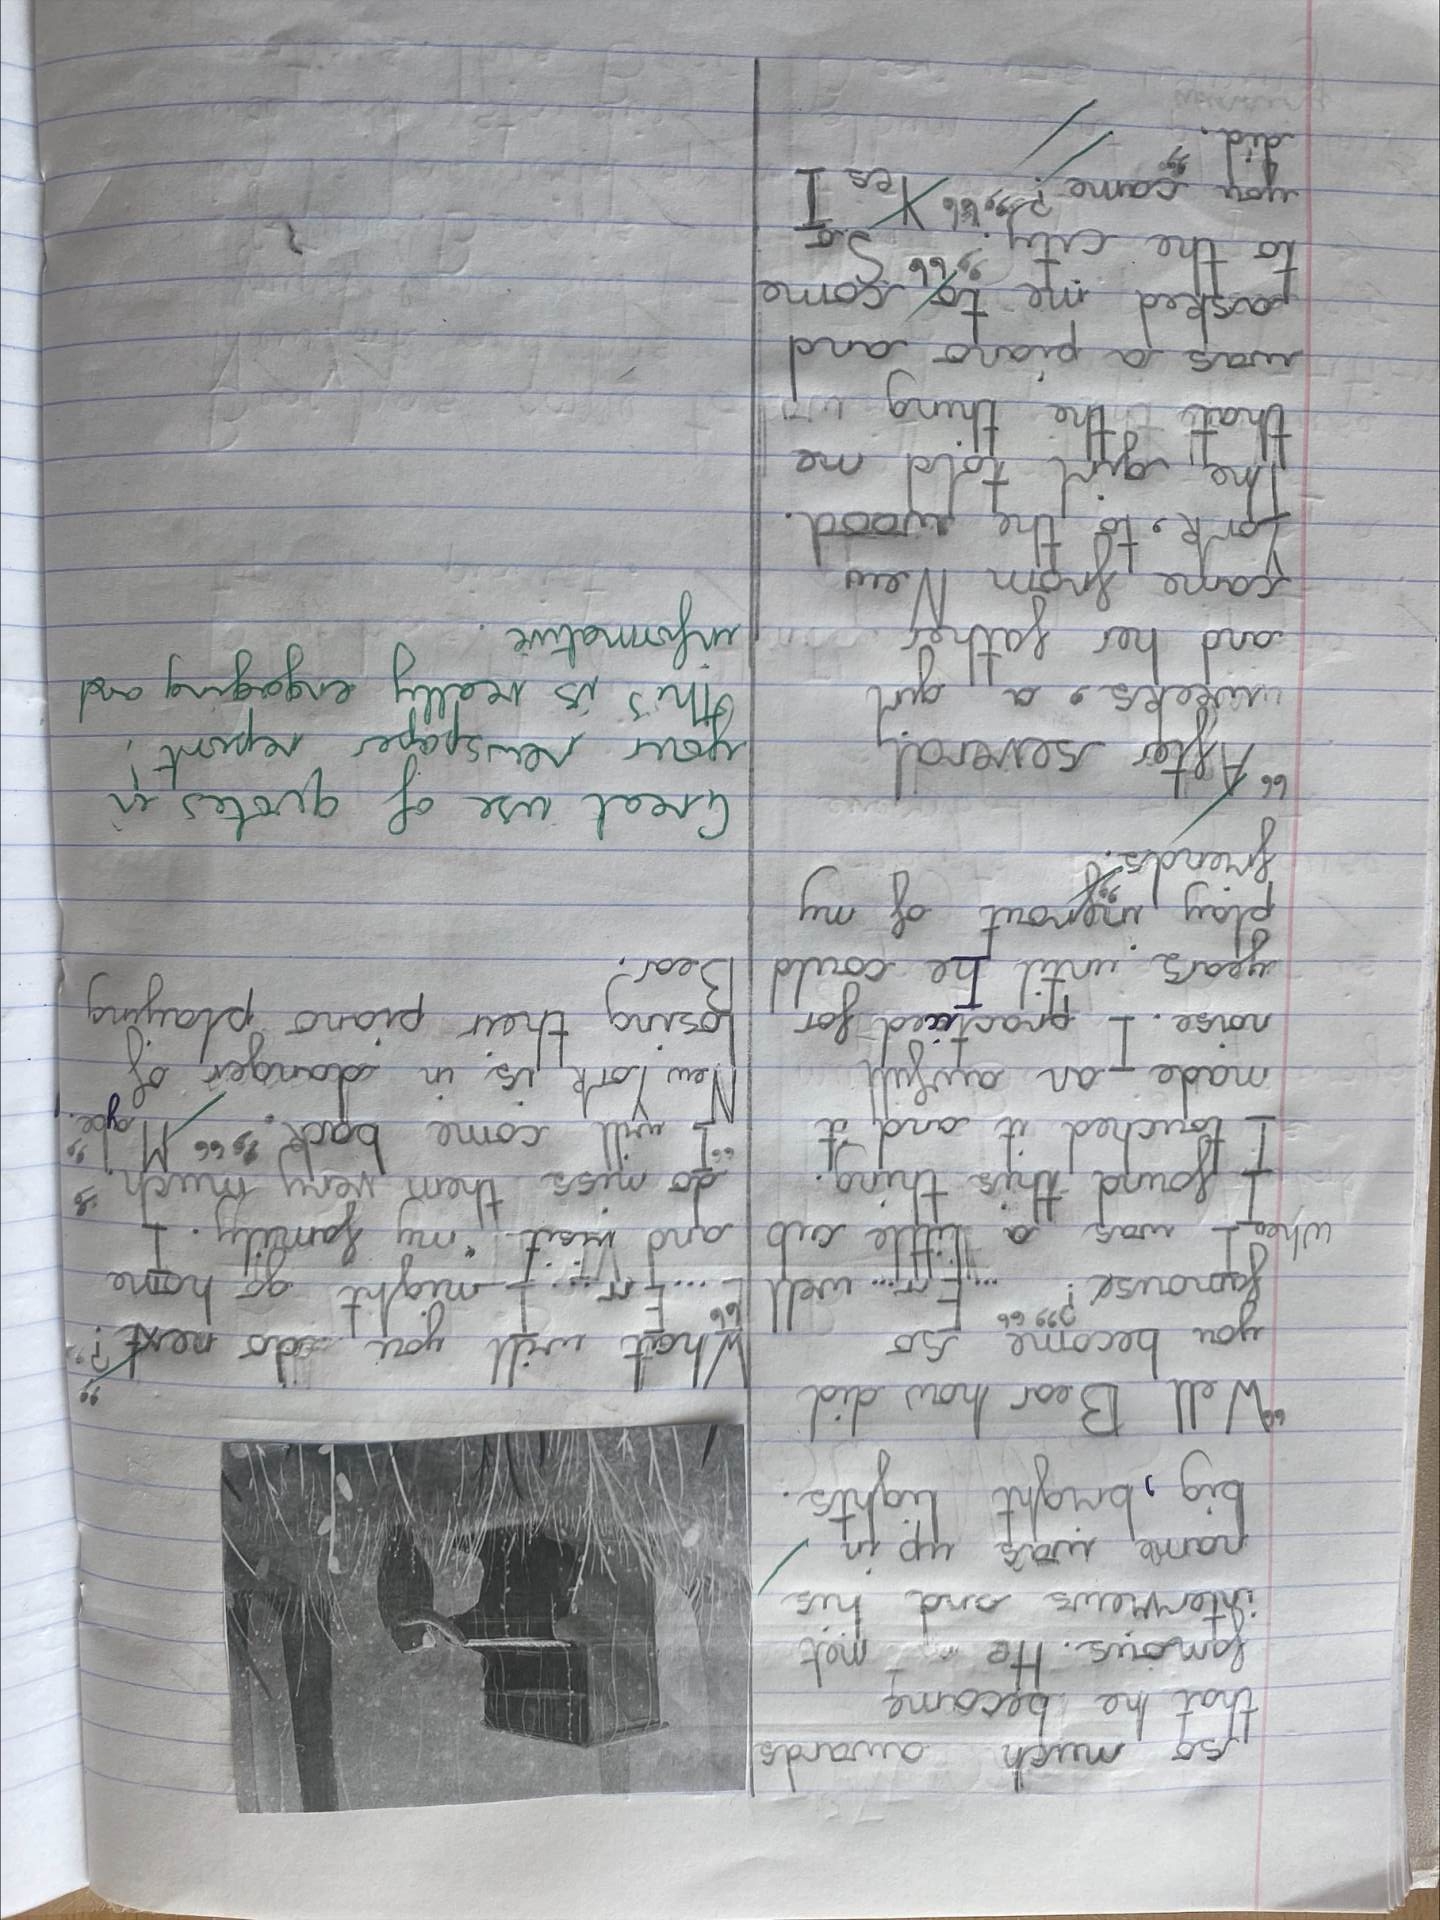 so much awards
that he became
famous. He met
interviews and his
name was up in
big, bright lights.
"Well Bear how did
you become so
famouse?" "Er... well
when I was a little cub
I found this thing.
I touched it and it
made an awfull
noise. I practiced for
years until he could
I
play infrout of my
friends."
"After several
weeks, a girl
and her father
came from New
York, to the wood.
The girl told me
that the thing
was a piano and
asked me to come
to the city." "So
you came?" "Yes I
did."
What will you do next?"
"E... Er... I might go home
and visit my family. I
do miss them very much."
"I will come back." "Maybe."
New York is in danger of
losing their piano playing
Bear.
Great use of quotes in
your newspaper report!
This is really engaging and
informative.